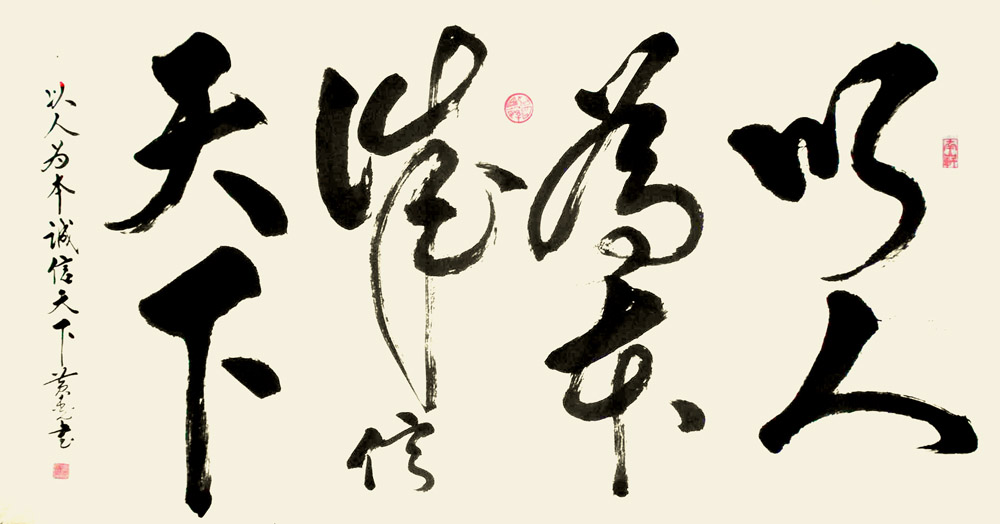 以人
為本
誠信
天下
以人为本诚信天下黄
书